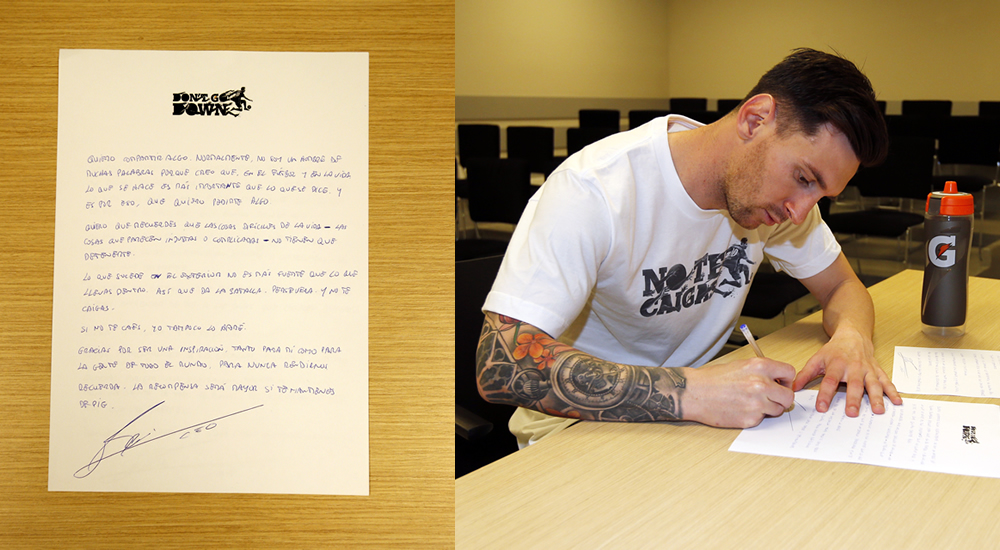 DON'T GO
DOWN
QUIERO COMPARTIR ALGO. NORMALMENTE, NO SOY UN HOMBRE DE
MUCHAS PALABRAS PORQUE CREO QUE, EN EL FÚTBOL Y EN LA VIDA
LO QUE SE HACE ES MÁS IMPORTANTE QUE LO QUE SE DICE. Y
ES POR ESO, QUE QUIERO PEDIRTE ALGO
QUIERO QUE RECUERDES QUE LAS COSAS DIFÍCILES DE LA VIDA - LAS
COSAS QUE PARECEN INJUSTAS O COMPLICADAS - NO TIENEN QUE
DETENERTE.
LO QUE SUCEDE EN EL EXTERIOR NO ES MÁS FUERTE QUE LO QUE
LLEVAS DENTRO. ASI QUE DA LA BATALLA. PERSEVERA. Y NO TE
CAIGAS.
SI NO TE CAES, YO TAMPOCO LO HARÉ.
GRACIAS POR SER UNA INSPIRACIÓN, TANTO PARA MÍ COMO PARA
LA GENTE DE TODO EL MUNDO, PARA NUNCA RENDIRNOS
RECUERDA. LA RECOMPENSA SERÁ MAYOR SI TE MANTIENES
DE PIE.
LEO
NO TE
CAIGAS
G
NO TE
CAIGAS